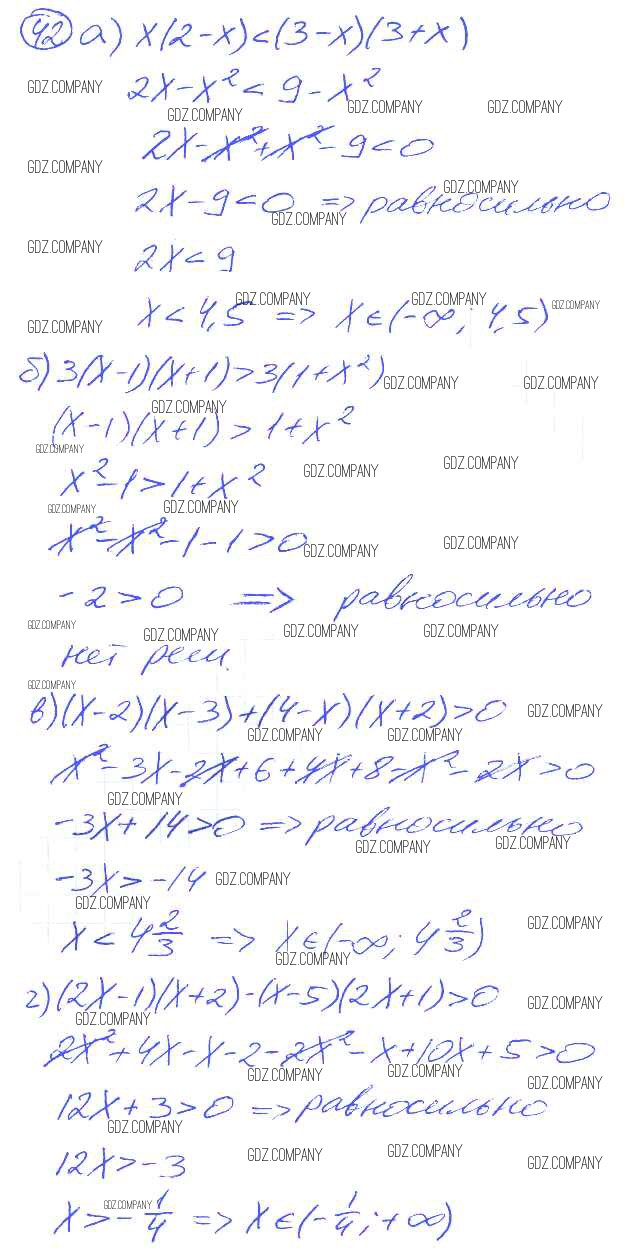 42 а) x(2-x)<(3-x)(3+x)
GDZ.COMPANY 2x-x²<9-x²
GDZ.COMPANY GDZ.COMPANY GDZ.COMPANY
2x-x²+x²-9<0
GDZ.COMPANY
GDZ.COMPANY
2x-9<0 => равносильно
GDZ.COMPANY
GDZ.COMPANY 2x<9
GDZ.COMPANY GDZ.COMPANY GDZ.COMPANY
GDZ.COMPANY x<4,5 => x∈(-∞; 4,5)
б) 3(x-1)(x+1)>3(1+x²) GDZ.COMPANY GDZ.COMPANY
GDZ.COMPANY
(x-1)(x+1)>1+x²
GDZ.COMPANY
x²-1>1+x² GDZ.COMPANY GDZ.COMPANY
GDZ.COMPANY GDZ.COMPANY
x²-x²-1-1>0 GDZ.COMPANY GDZ.COMPANY
-2>0 => равносильно
GDZ.COMPANY GDZ.COMPANY GDZ.COMPANY GDZ.COMPANY
нет реш.
GDZ.COMPANY
в) (x-2)(x-3)+(4-x)(x+2)>0 GDZ.COMPANY
GDZ.COMPANY GDZ.COMPANY
x²-3x-2x+6+4x+8-x²-2x>0
GDZ.COMPANY
-3x+14>0 => равносильно
GDZ.COMPANY GDZ.COMPANY
-3x>-14 GDZ.COMPANY
GDZ.COMPANY
x<4 2/3 => x∈(-∞; 4 2/3) GDZ.COMPANY
GDZ.COMPANY
г) (2x-1)(x+2)-(x-5)(2x+1)>0 GDZ.COMPANY
GDZ.COMPANY
2x²+4x-x-2-2x²-x+10x+5>0
GDZ.COMPANY GDZ.COMPANY GDZ.COMPANY
12x+3>0 => равносильно
GDZ.COMPANY
12x>-3 GDZ.COMPANY GDZ.COMPANY GDZ.COMPANY
GDZ.COMPANY
x>-1/4 => x∈(-1/4; +∞)